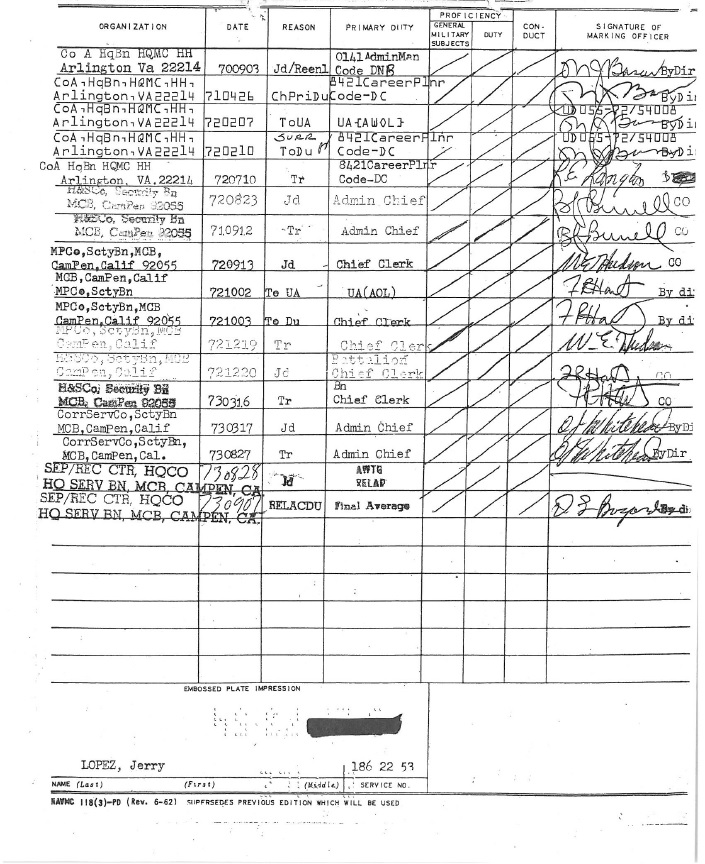 ORGANIZATION DATE REASON PRIMARY DUTY PROFICIENCY GENERAL MILITARY SUBJECTS DUTY CON-DUCT SIGNATURE OF MARKING OFFICER
Co A HqBn HQMC HH 0141AdminMan
Arlington Va 22214 700903 Jd/Reenl Code DNB ByDir
CoA,HqBn,HQMC,HH, 8421CareerPlnr
Arlington,VA22214 710426 ChPriDu Code-DC ByDir
CoA,HqBn,HQMC,HH, UD055-72/54008
Arlington,VA22214 720207 ToUA UA{AWOL} ByDi
CoA,HqBn,HQMC,HH, SURR 8421CareerPlnr UD055-72/54008
Arlington,VA22214 720210 ToDu Code-DC ByDi
CoA HqBn HQMC HH 8421CareerPlnr
Arlington, VA.22214 720710 Tr Code-DC
H&SCo, Security Bn
MCB, CamPen 92055 720823 Jd Admin Chief CO
H&SCo, Security Bn
MCB, CamPen 92055 710912 Tr Admin Chief CO
MPCo,SctyBn,MCB,
CamPen,Calif 92055 720913 Jd Chief Clerk W E Hudson CO
MCB,CamPen,Calif
MPCo,SctyBn 721002 To UA UA(AOL) By di
MPCo,SctyBn,MCB
CamPen,Calif 92055 721003 To Du Chief Clerk By di
MPCo,SctyBn,MCB
CamPen,Calif 721219 Tr Chief Clerk W.E. Hudson
H&SCo,SctyBn,MCB Battalion
CamPen,Calif 721220 Jd Chief Clerk CO
H&SCo, Security Bn Bn
MCB, CamPen 92055 730316 Tr Chief Clerk CO
CorrServCo,SctyBn
MCB,CamPen,Calif 730317 Jd Admin Chief ByDi
CorrServCo,SctyBn,
MCB,CamPen,Cal. 730827 Tr Admin Chief ByDir
SEP/REC CTR, HQCO 730828 AWTG
HQ SERV BN, MCB, CAMPEN, CA. Jd RELAD
SEP/REC CTR, HQCO 730907
HQ SERV BN, MCB, CAMPEN, CA. RELACDU Final Average By di
EMBOSSED PLATE IMPRESSION
LOPEZ, Jerry 186 22 53
NAME (Last) (First) (Middle) SERVICE NO.
NAVMC 118(3)-PD (Rev. 6-62) SUPERSEDES PREVIOUS EDITION WHICH WILL BE USED